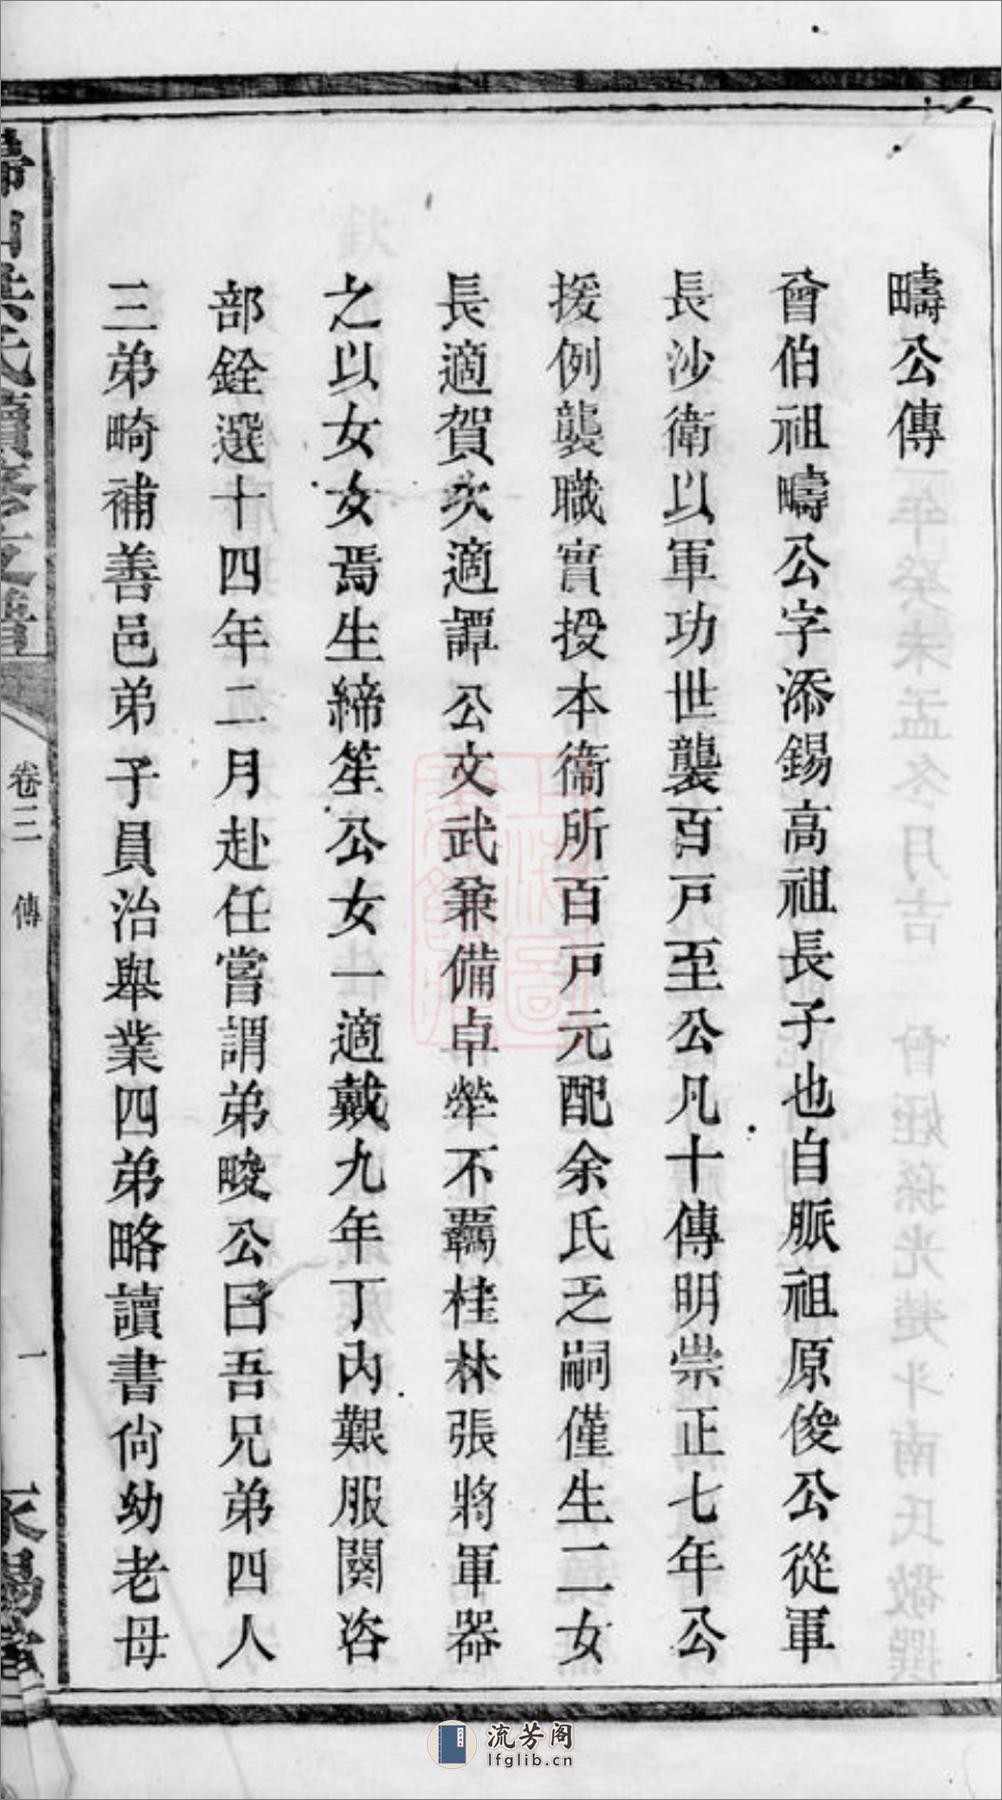 疇公傳
曾伯祖疇公字添錫高祖長子也自脈祖原俊公從軍
長沙衛以軍功世襲百戸至公凡十傳明崇正七年公
援例襲職實授本衛所百戸元配余氏乏嗣僅生二女
長適賀次適譚公文武兼備卓犖不羈桂林張將軍器
之以女女焉生締笙公女一適戴九年丁內艱服闋咨
部銓選十四年二月赴任嘗謂弟畯公曰吾兄弟四人
三弟畸補善邑弟子員治舉業四弟略讀書尙幼老母
卷三 傳
一
流芳阁
lfglib.cn